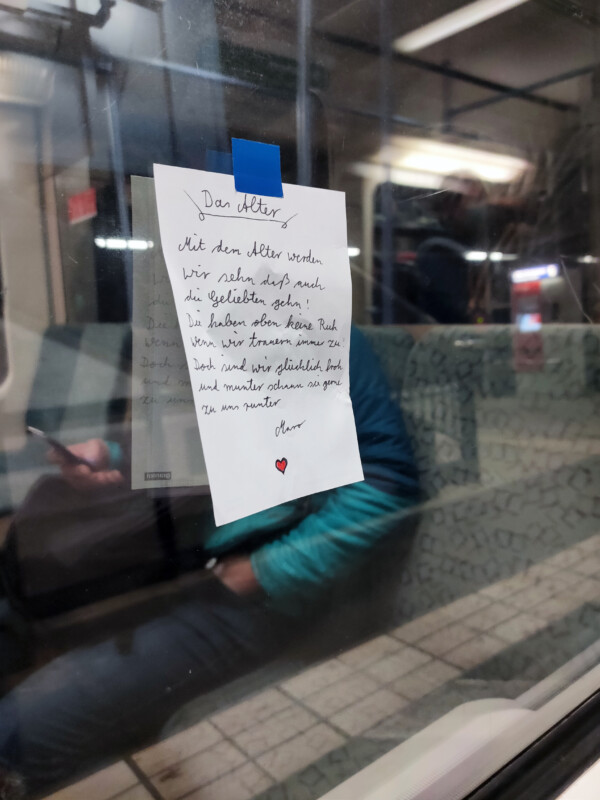 Das Alter
Mit dem Alter werden
wir sehn daß auch
die Geliebten gehn!
Die haben oben keine Ruh
wenn wir trauern immer zu
Doch sind wir glücklich froh
und munter schaun sie gerne
zu uns runter